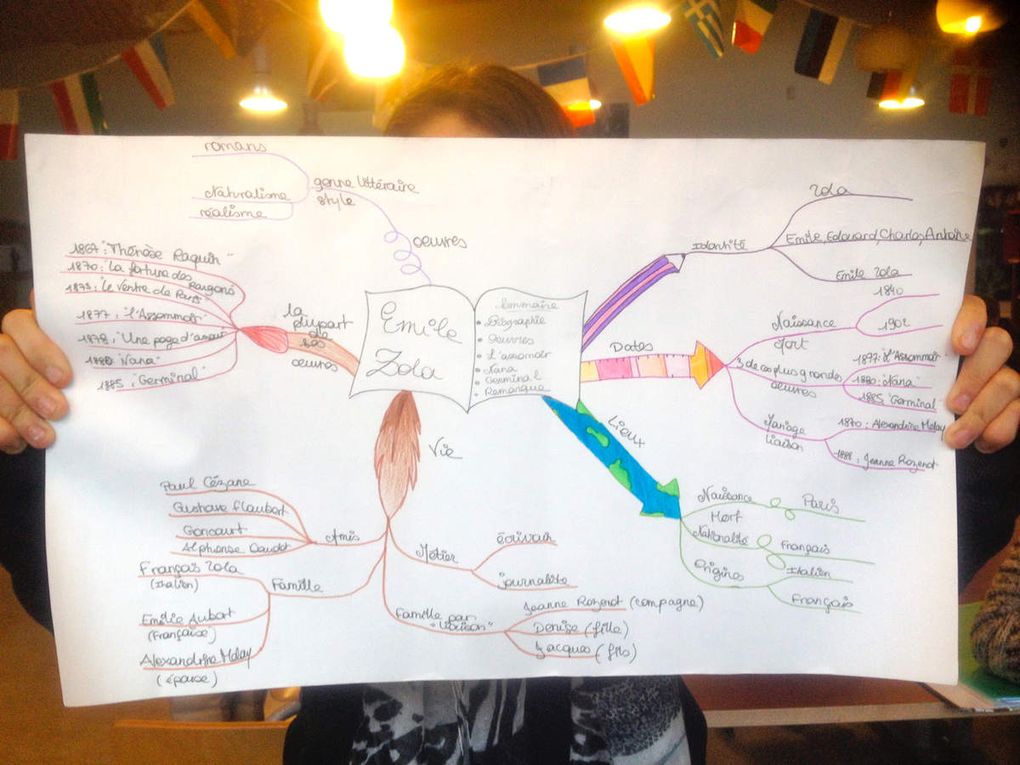 Emile
Zola
Sommaire
Biographie
Oeuvres
L'assomoir
Nana
Germinal
Remarque
oeuvres
genre littéraire
style
romans
Naturalisme
réalisme
la
plupart
de
ses
oeuvres
1867: "Thérèse Raquin"
1870: "La fortune des
Rougons
1873: "Le ventre de Paris"
1877: "L'Assommoir"
1878: "Une page d'amour"
1880: "Nana"
1885: "Germinal"
Identité
Zola
Emile, Edouard, Charles, Antoine
Emile Zola
Dates
Naissance
1840
Mort
1902
3 de ces plus grandes
oeuvres
1877: "L'Assommoir"
1880: "Nana"
1885: "Germinal"
Mariage
liaison
1870: Alexandrine Melay
1888: Jeanne Rozerot
Lieux
Naissance
Mort
Paris
Nationalité
Français
Origines
Italien
Français
Vie
Amis
Paul Cézane
Gustave flaubert
Goncourt
Alphonse Daudet
Famille
François Zola
(Italien)
Emilie Aubert
(Française)
Alexandrine Melay
(épouse)
Métier
écrivain
journaliste
Famille par
"liaison"
Jeanne Rozerot (compagne)
Denise (fille)
Jacques (fils)